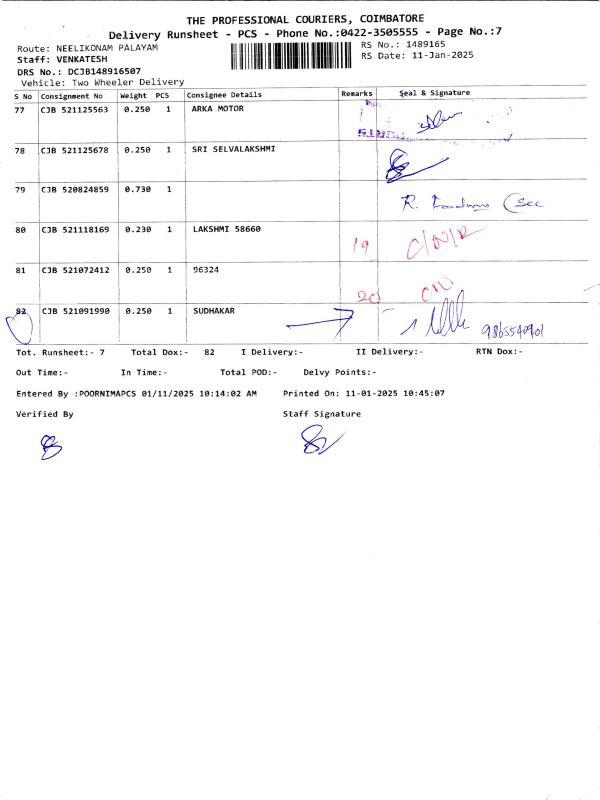 THE PROFESSIONAL COURIERS, COIMBATORE
Delivery Runsheet - PCS - Phone No.:0422-3505555 - Page No.:7
Route: NEELIKONAM PALAYAM
RS No.: 1489165
Staff: VENKATESH
RS Date: 11-Jan-2025
DRS No.: DCJB148916507
Vehicle: Two Wheeler Delivery
S No Consignment No Weight PCS Consignee Details Remarks Seal & Signature
77 CJB 521125563 0.250 1 ARKA MOTOR
78 CJB 521125678 0.250 1 SRI SELVALAKSHMI
79 CJB 520824859 0.730 1 R.
80 CJB 521118169 0.230 1 LAKSHMI 58660 19 C/N/R
81 CJB 521072412 0.250 1 96324 20 CN
82 CJB 521091990 0.250 1 SUDHAKAR
Tot. Runsheet:- 7 Total Dox:- 82 I Delivery:- II Delivery:- RTN Dox:-
Out Time:- In Time:- Total POD:- Delvy Points:-
Entered By :POORNIMAPCS 01/11/2025 10:14:02 AM Printed On: 11-01-2025 10:45:07
Verified By Staff Signature